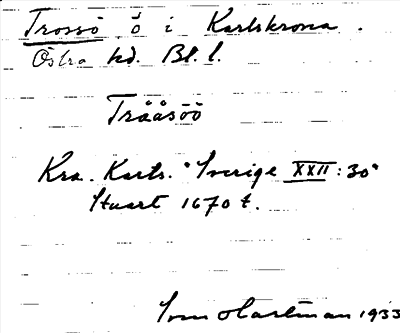 Trossö ö i Karlskrona.
Östra hd. Bl. l.
Trååsöö
Kra. Kartv. "Sverige XXII:30"
Stuart 1670 t.
Sven Hartman 1933